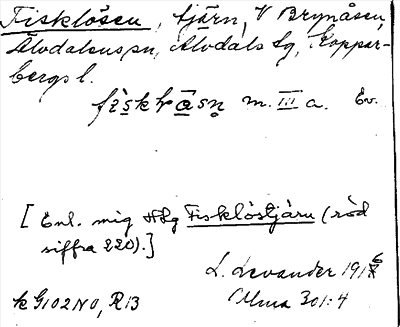 Fisklösen, tjärn, V Brynåsen,
Älvdalens sn, Älvdals tg, Koppar-
bergs l.
fiskləsn m. III a. Ev.
[Enl. mig Hlg Fisklöstjärn (röd
siffra 220).]
L. Levander 1916
k G102 NO, R13
Alma 301:4